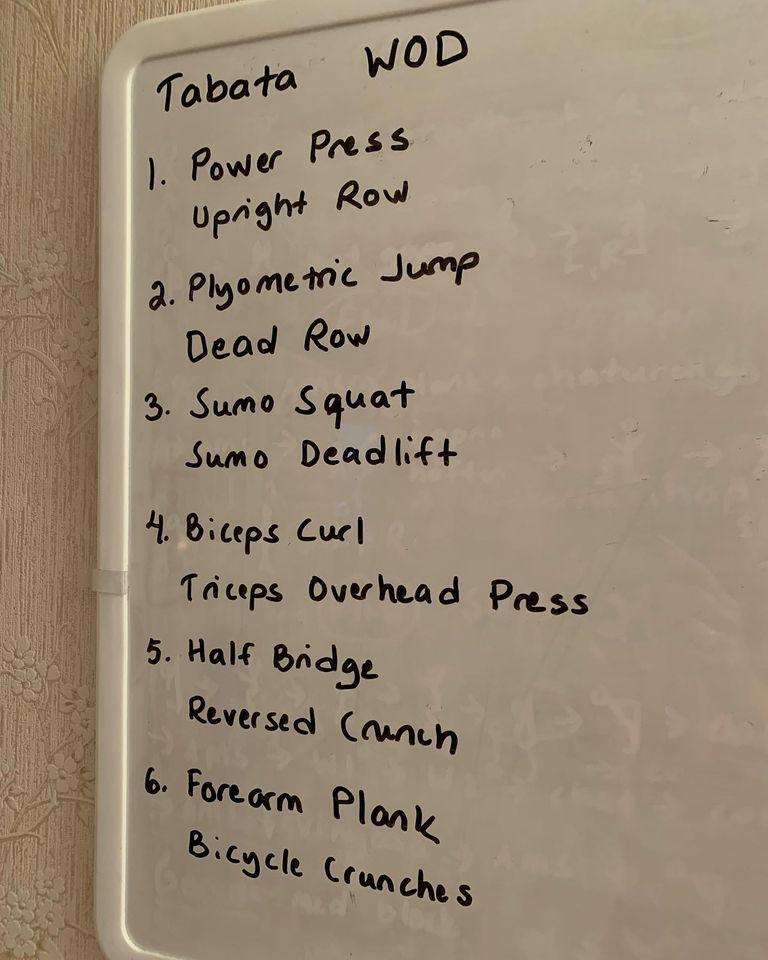 Tabata WOD
1. Power Press
Upright Row
2. Plyometric Jump
Dead Row
3. Sumo Squat
Sumo Deadlift
4. Biceps Curl
Triceps Overhead Press
5. Half Bridge
Reversed Crunch
6. Forearm Plank
Bicycle Crunches